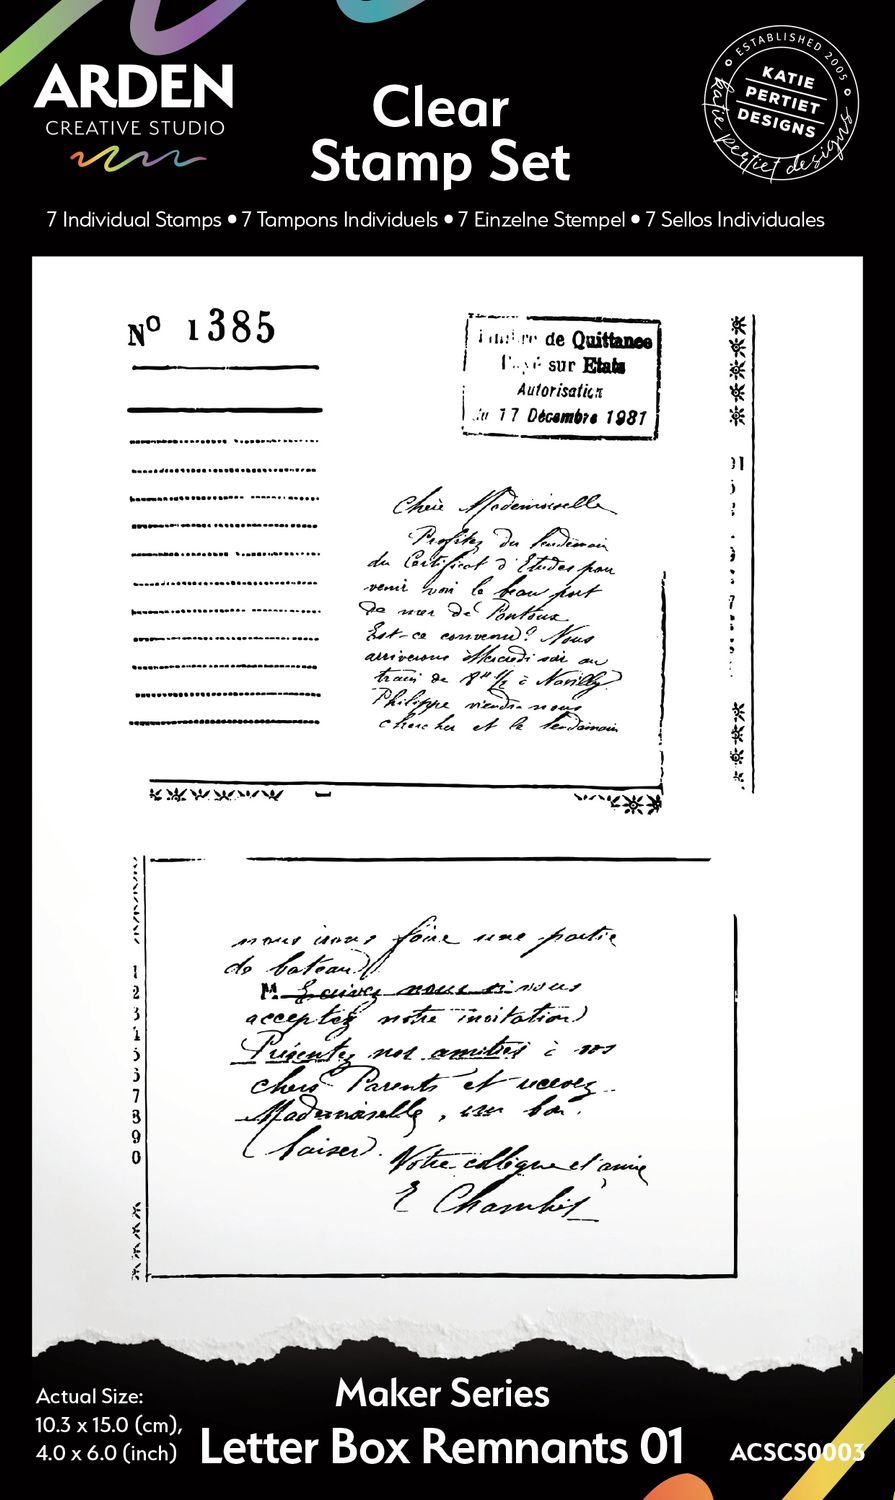 ARDEN
CREATIVE STUDIO
Clear
Stamp Set
ESTABLISHED 2005
KATIE
PERTIET
DESIGNS
katie pertiet designs
7 Individual Stamps • 7 Tampons Individuels • 7 Einzelne Stempel • 7 Sellos Individuales
Nº 1385
de Quittance
sur Etats
Autorisation
du 17 Décembre 1981
Chère Mademoiselle
Profitez du lendemain
du Certificat d'Etudes pour
venir voir le beau port
de mer de
Est-ce convenu? Nous
arriverons Mercredi soir au
train de 8 H 1/2 à
Philippe viendra nous
chercher et le lendemain
nous irons faire une partie
de bateau
M. Ecrivez nous si vous
acceptez notre invitation
Présentez nos amitiés à vos
chers Parents et recevez
Mademoiselle, un bon
baiser.
Votre collègue et amie
E
1
2
3
4
5
6
7
8
9
0
Actual Size:
10.3 x 15.0 (cm),
4.0 x 6.0 (inch)
Maker Series
Letter Box Remnants 01
ACSCS0003